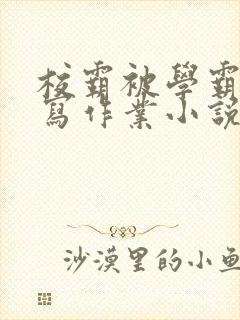 校霸被學霸
寫作業小說
沙漠里的小鱼